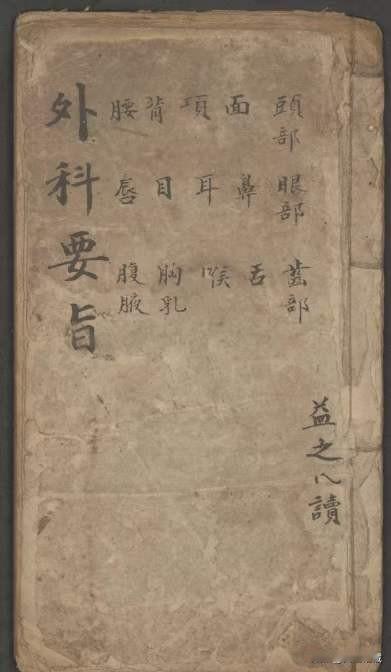 益之八讀
頭部 眼部 齒部
面 鼻 舌
項 耳 喉
背 目 胸乳
腰 唇 腹腋
外科要旨